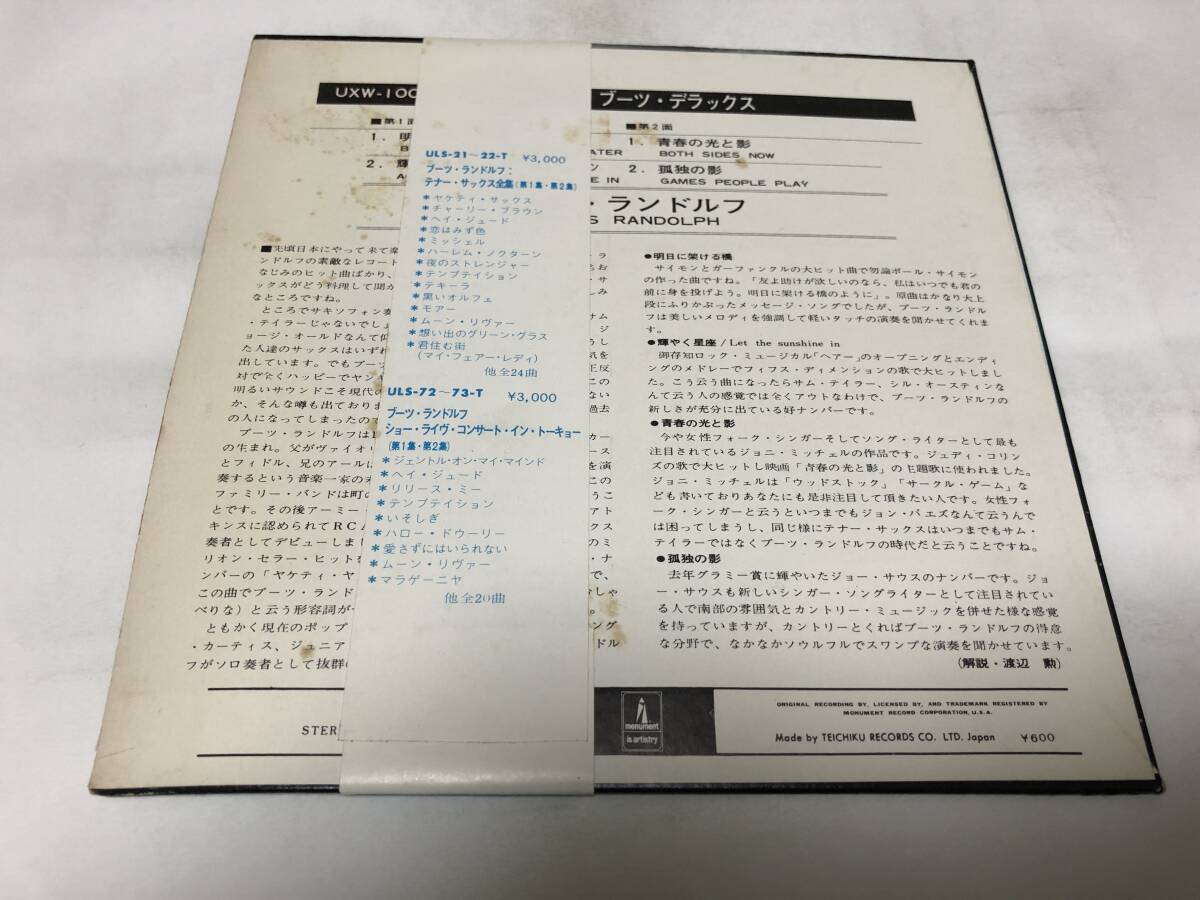 UXW-100
ブーツ・デラックス
■第1面
1. 明
B
ATER
2. 輝
ン
A
E IN
■第2面
1. 青春の光と影
BOTH SIDES NOW
2. 孤独の影
GAMES PEOPLE PLAY
・ランドルフ
S RANDOLPH
ULS-21～22-T ¥3,000
ブーツ・ランドルフ:
テナー・サックス全集(第1集・第2集)
*ヤケティ・サックス
*チャーリー・ブラウン
*ヘイ・ジュード
*恋はみず色
*ミッシェル
*ハーレム・ノクターン
*夜のストレンジャー
*テンプテイション
*テキーラ
*黒いオルフェ
*モアー
*ムーン・リヴァー
*想い出のグリーン・グラス
*君住む街
(マイ・フェアー・レディ)
他全24曲
ULS-72～73-T ¥3,000
ブーツ・ランドルフ
ショー・ライヴ・コンサート・イン・トーキョー
(第1集・第2集)
*ジェントル・オン・マイ・マインド
*ヘイ・ジュード
*リリース・ミー
*テンプテイション
*いそしぎ
*ハロー・ドウーリー
*愛さずにはいられない
*ムーン・リヴァー
*マラゲーニヤ
他全20曲
■先頃日本にやって来て楽
ンドルフの素敵なレコート
なじみのヒット曲ばかり、
ックスがどう料理して聞か
なところですね。
ところでサキソフィン奏
・テイラーじゃないでしょ
ョージ・オールドなんて仰
た人達のサックスはいずれ
出しています。でもブーツ
対で全くハッピーでヤンキ
明るいサウンドこそ現代の
か、そんな噂も出ておりま
の人になってしまったので
ブーツ・ランドルフは1
の生まれ。父がヴァイオリ
とフィドル、兄のアールは
奏するという音楽一家の末
ファミリー・バンドは町の
とです。その後アーミー・
キンスに認められてRCA
奏者としてデビューしまし
リオン・セラー・ヒットを
ンバーの「ヤケティ・ヤ
この曲でブーツ・ランド
べりな)と云う形容詞が
ともかく現在のポップ
・カーティス、ジュニア
フがソロ奏者として抜群の
●明日に架ける橋
サイモンとガーファンクルの大ヒット曲で勿論ポール・サイモン
の作った曲ですね。「友よ助けが欲しいのなら、私はいつでも君の
前に身を投げよう。明日に架ける橋のように」。原曲はかなり大上
段にふりかぶったメッセージ・ソングでしたが、ブーツ・ランドル
フは美しいメロディを強調して軽いタッチの演奏を聞かせてくれま
す。
●輝やく星座/Let the sunshine in
御存知ロック・ミュージカル「ヘアー」のオープニングとエンディ
ングのメドレーでフィフス・ディメンションの歌で大ヒットしまし
た。こう云う曲になったらサム・テイラー、シル・オースティンな
んて云う人の感覚では全くアウトなわけで、ブーツ・ランドルフの
新しさが充分に出ている好ナンバーです。
●青春の光と影
今や女性フォーク・シンガーそしてソング・ライターとして最も
注目されているジョニ・ミッチェルの作品です。ジュディ・コリン
ズの歌で大ヒットし映画「青春の光と影」の主題歌に使われました。
ジョニ・ミッチェルは「ウッドストック」「サークル・ゲーム」な
ども書いておりあなたにも是非注目して頂きたい人です。女性フォ
ーク・シンガーと云うといつまでもジョン・バエズなんて云うんで
は困ってしまうし、同じ様にテナー・サックスはいつまでもサム・
テイラーではなくブーツ・ランドルフの時代だと云うことですね。
●孤独の影
去年グラミー賞に輝やいたジョー・サウスのナンバーです。ジョ
ー・サウスも新しいシンガー・ソングライターとして注目されてい
る人で南部の雰囲気とカントリー・ミュージックを併せた様な感覚
を持っていますが、カントリーとくればブーツ・ランドルフの得意
な分野で、なかなかソウルフルでスワンプな演奏を聞かせています。
(解説・渡辺 勲)
STER
monument
is artistry
ORIGINAL RECORDING BY, LICENSED BY, AND TRADEMARK REGISTERED BY
MONUMENT RECORD CORPORATION, U.S.A.
Made by TEICHIKU RECORDS CO. LTD. Japan ¥600